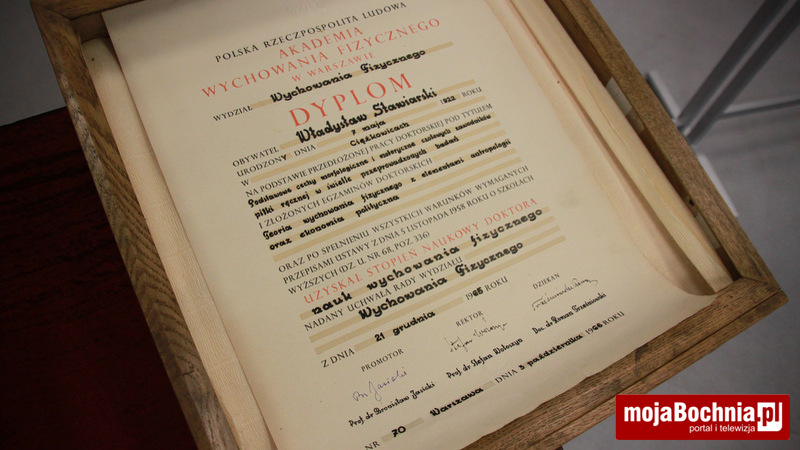 POLSKA RZECZPOSPOLITA LUDOWA
AKADEMIA
WYCHOWANIA FIZYCZNEGO
W WARSZAWIE
WYDZIAŁ Wychowania Fizycznego
DYPLOM
OBYWATEL Władysław Stawiarski
URODZONY DNIA 7 maja 1922 ROKU
W Ciężkowicach
NA PODSTAWIE PRZEDŁOŻONEJ PRACY DOKTORSKIEJ POD TYTUŁEM
Podstawowe cechy morfologiczne i motoryczne czołowych zawodników
piłki ręcznej w świetle przeprowadzonych badań
I ZŁOŻONYCH EGZAMINÓW DOKTORSKICH
Teoria wychowania fizycznego z elementami antropologii
oraz ekonomia polityczna
ORAZ PO SPEŁNIENIU WSZYSTKICH WARUNKÓW WYMAGANYCH
PRZEPISAMI USTAWY Z DNIA 5 LISTOPADA 1958 ROKU O SZKOŁACH
WYŻSZYCH (DZ. U. NR 68, POZ. 336)
UZYSKAŁ STOPIEŃ NAUKOWY DOKTORA
nauk wychowania fizycznego
NADANY UCHWAŁĄ RADY WYDZIAŁU
Wychowania Fizycznego
Z DNIA 21 grudnia 1965 ROKU
PROMOTOR REKTOR DZIEKAN
Prof dr Bronisław Jasicki Prof dr Stefan Wołoszyn Doc dr Roman Trześniowski
NR 70 Warszawa DNIA 3 października 1966 ROKU
mojaBochnia.pl
portal i telewizja